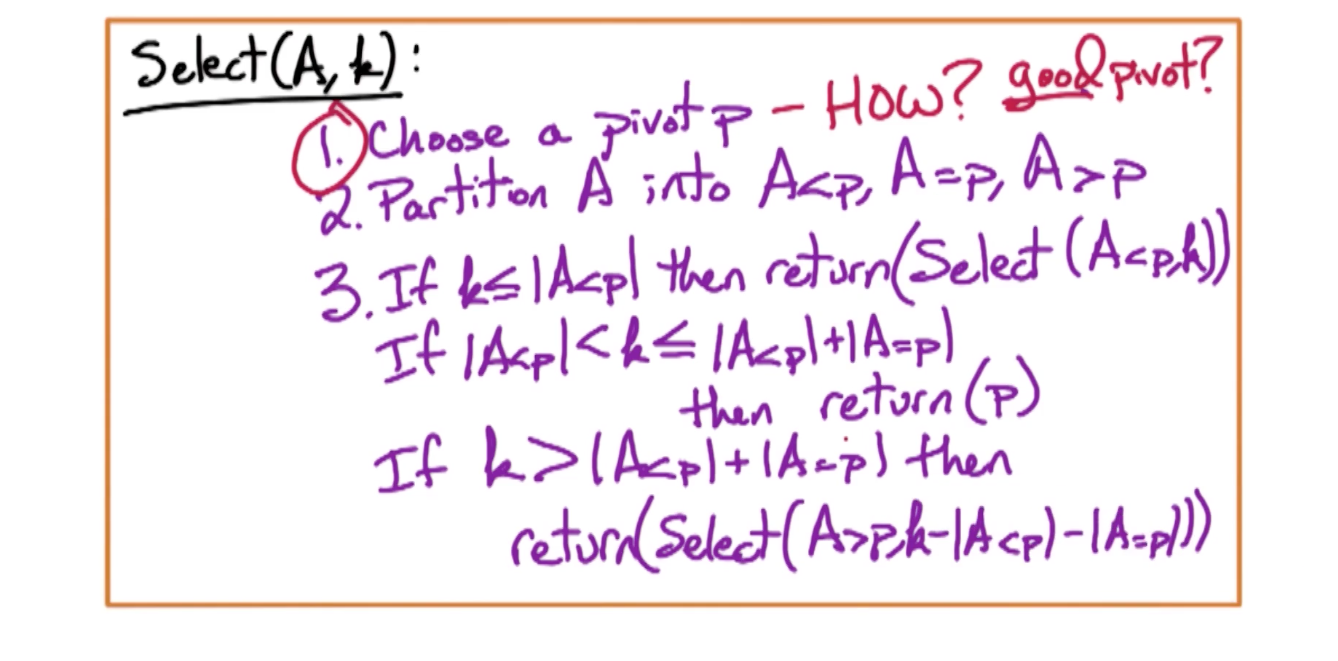 Select(A, k):
1. Choose a pivot p - How? good pivot?
2. Partition A into A<p, A=p, A>p
3. If k≤|A<p| then return(Select(A<p,k))
If |A<p|<k≤|A<p|+|A=p|
then return(p)
If k>|A<p|+|A=p| then
return(Select(A>p,k-|A<p|-|A=p|))